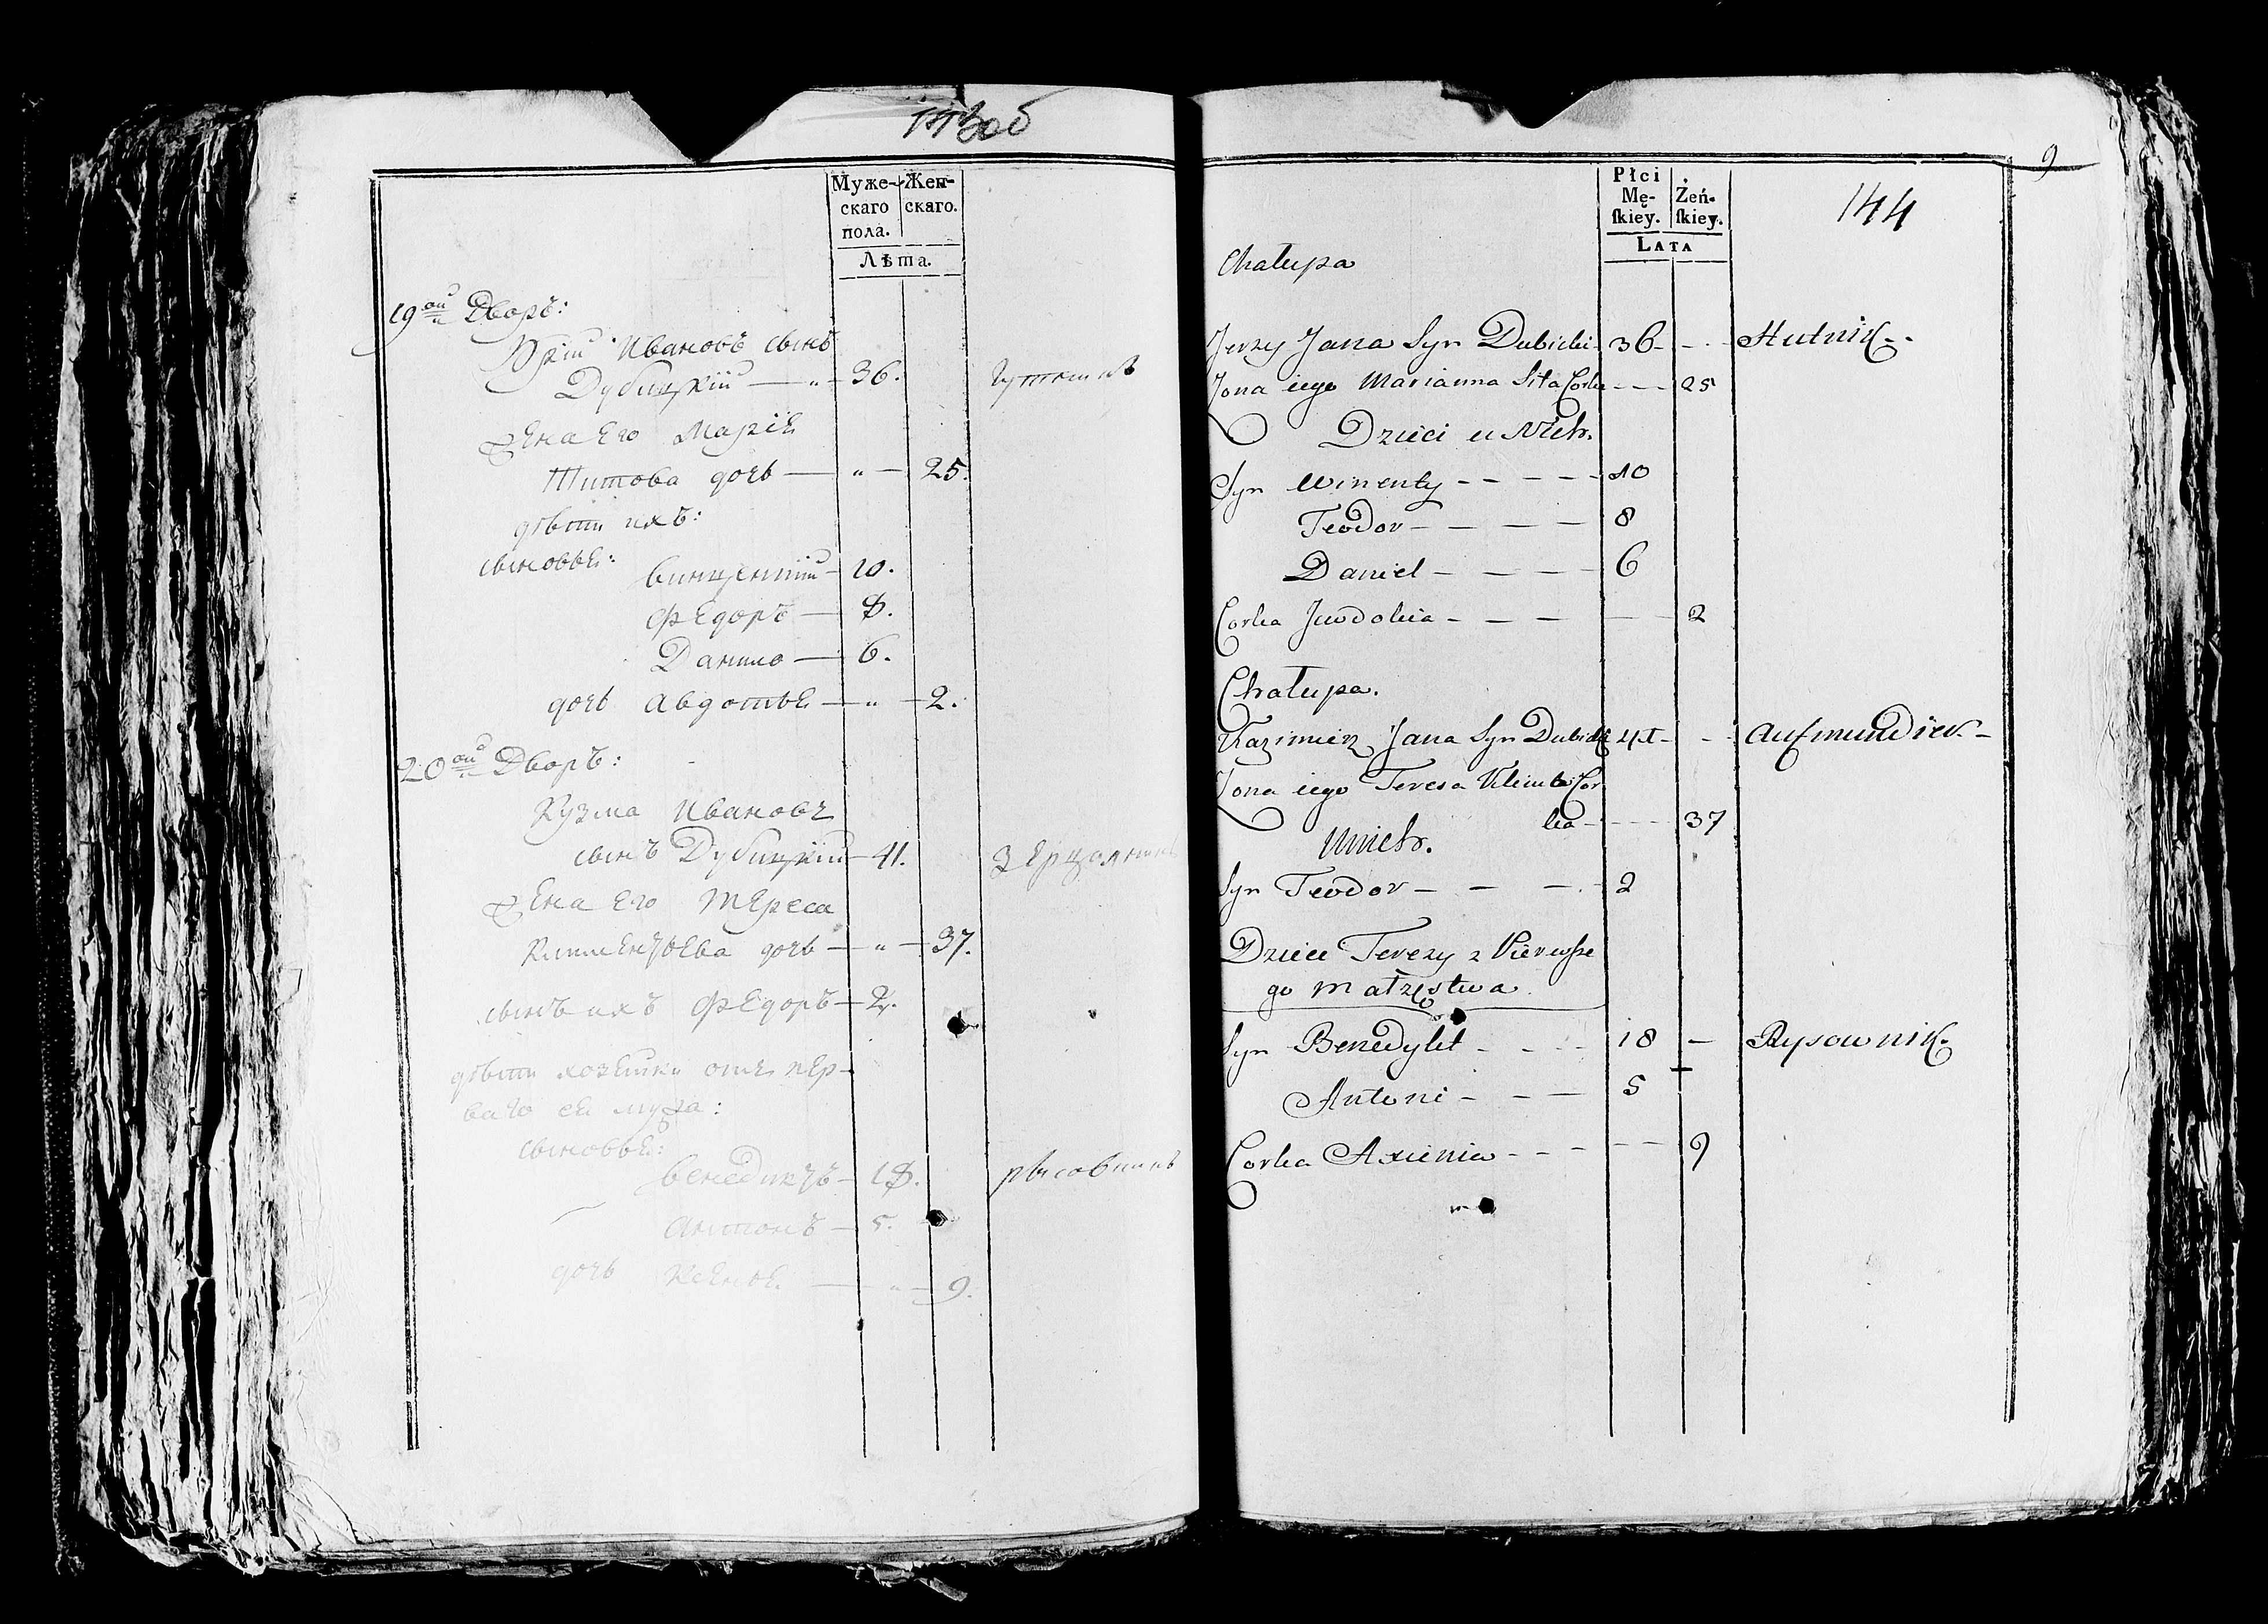 143об
Муже-
скаго
пола.
Жен-
скаго.
Лѣта.
19ой Дворъ:
Юрiй Ивановъ сынъ
Дубицкiй — " — 36. гутникъ
Жена Его Марiе
Титова дочь — " — 25.
дѣти ихъ:
сыновье:
винцентiй — 10.
Федоръ — 8.
Данило — 6.
дочь авдотье — " — 2.
20ой Дворъ:
Кузма Ивановъ
сынъ Дубицкiй — 41.
Жена Его Тереса
Климентьева дочь — " — 37.
сынъ ихъ Федоръ — 2.
дѣти хозейки отъ пер-
ваго ее мужа:
сыновье:
венедиктъ — 18. рисовникъ
антонъ — 5.
дочь — " — 9.
9
144
Płci
Mę-
ſkiey.
Żeń-
ſkiey.
LATA
Chałupa
Jerzy Jana Syn Dubicki 36 - - Hutnik
Żona iego Marianna Tita Corka - - 25
Dzieci u Nich.
Syn Wincenty - - - - 10
Teodor - - - - 8
Daniel - - - - 6
Corka Jewdokia - - - - 2
Chałupa.
Kazimierz Jana Syn Dubicki 41 - -
Żona iego Teresa Klimta Cor
ka - - - 37
U nich.
Syn Teodor - - - 2
Dzieci Terezy z Pierwsze
go małżęstwa.
Syn Benedykt - - - 18 - Rysownik
Antoni - - - 5
Corka Axienia - - - 9